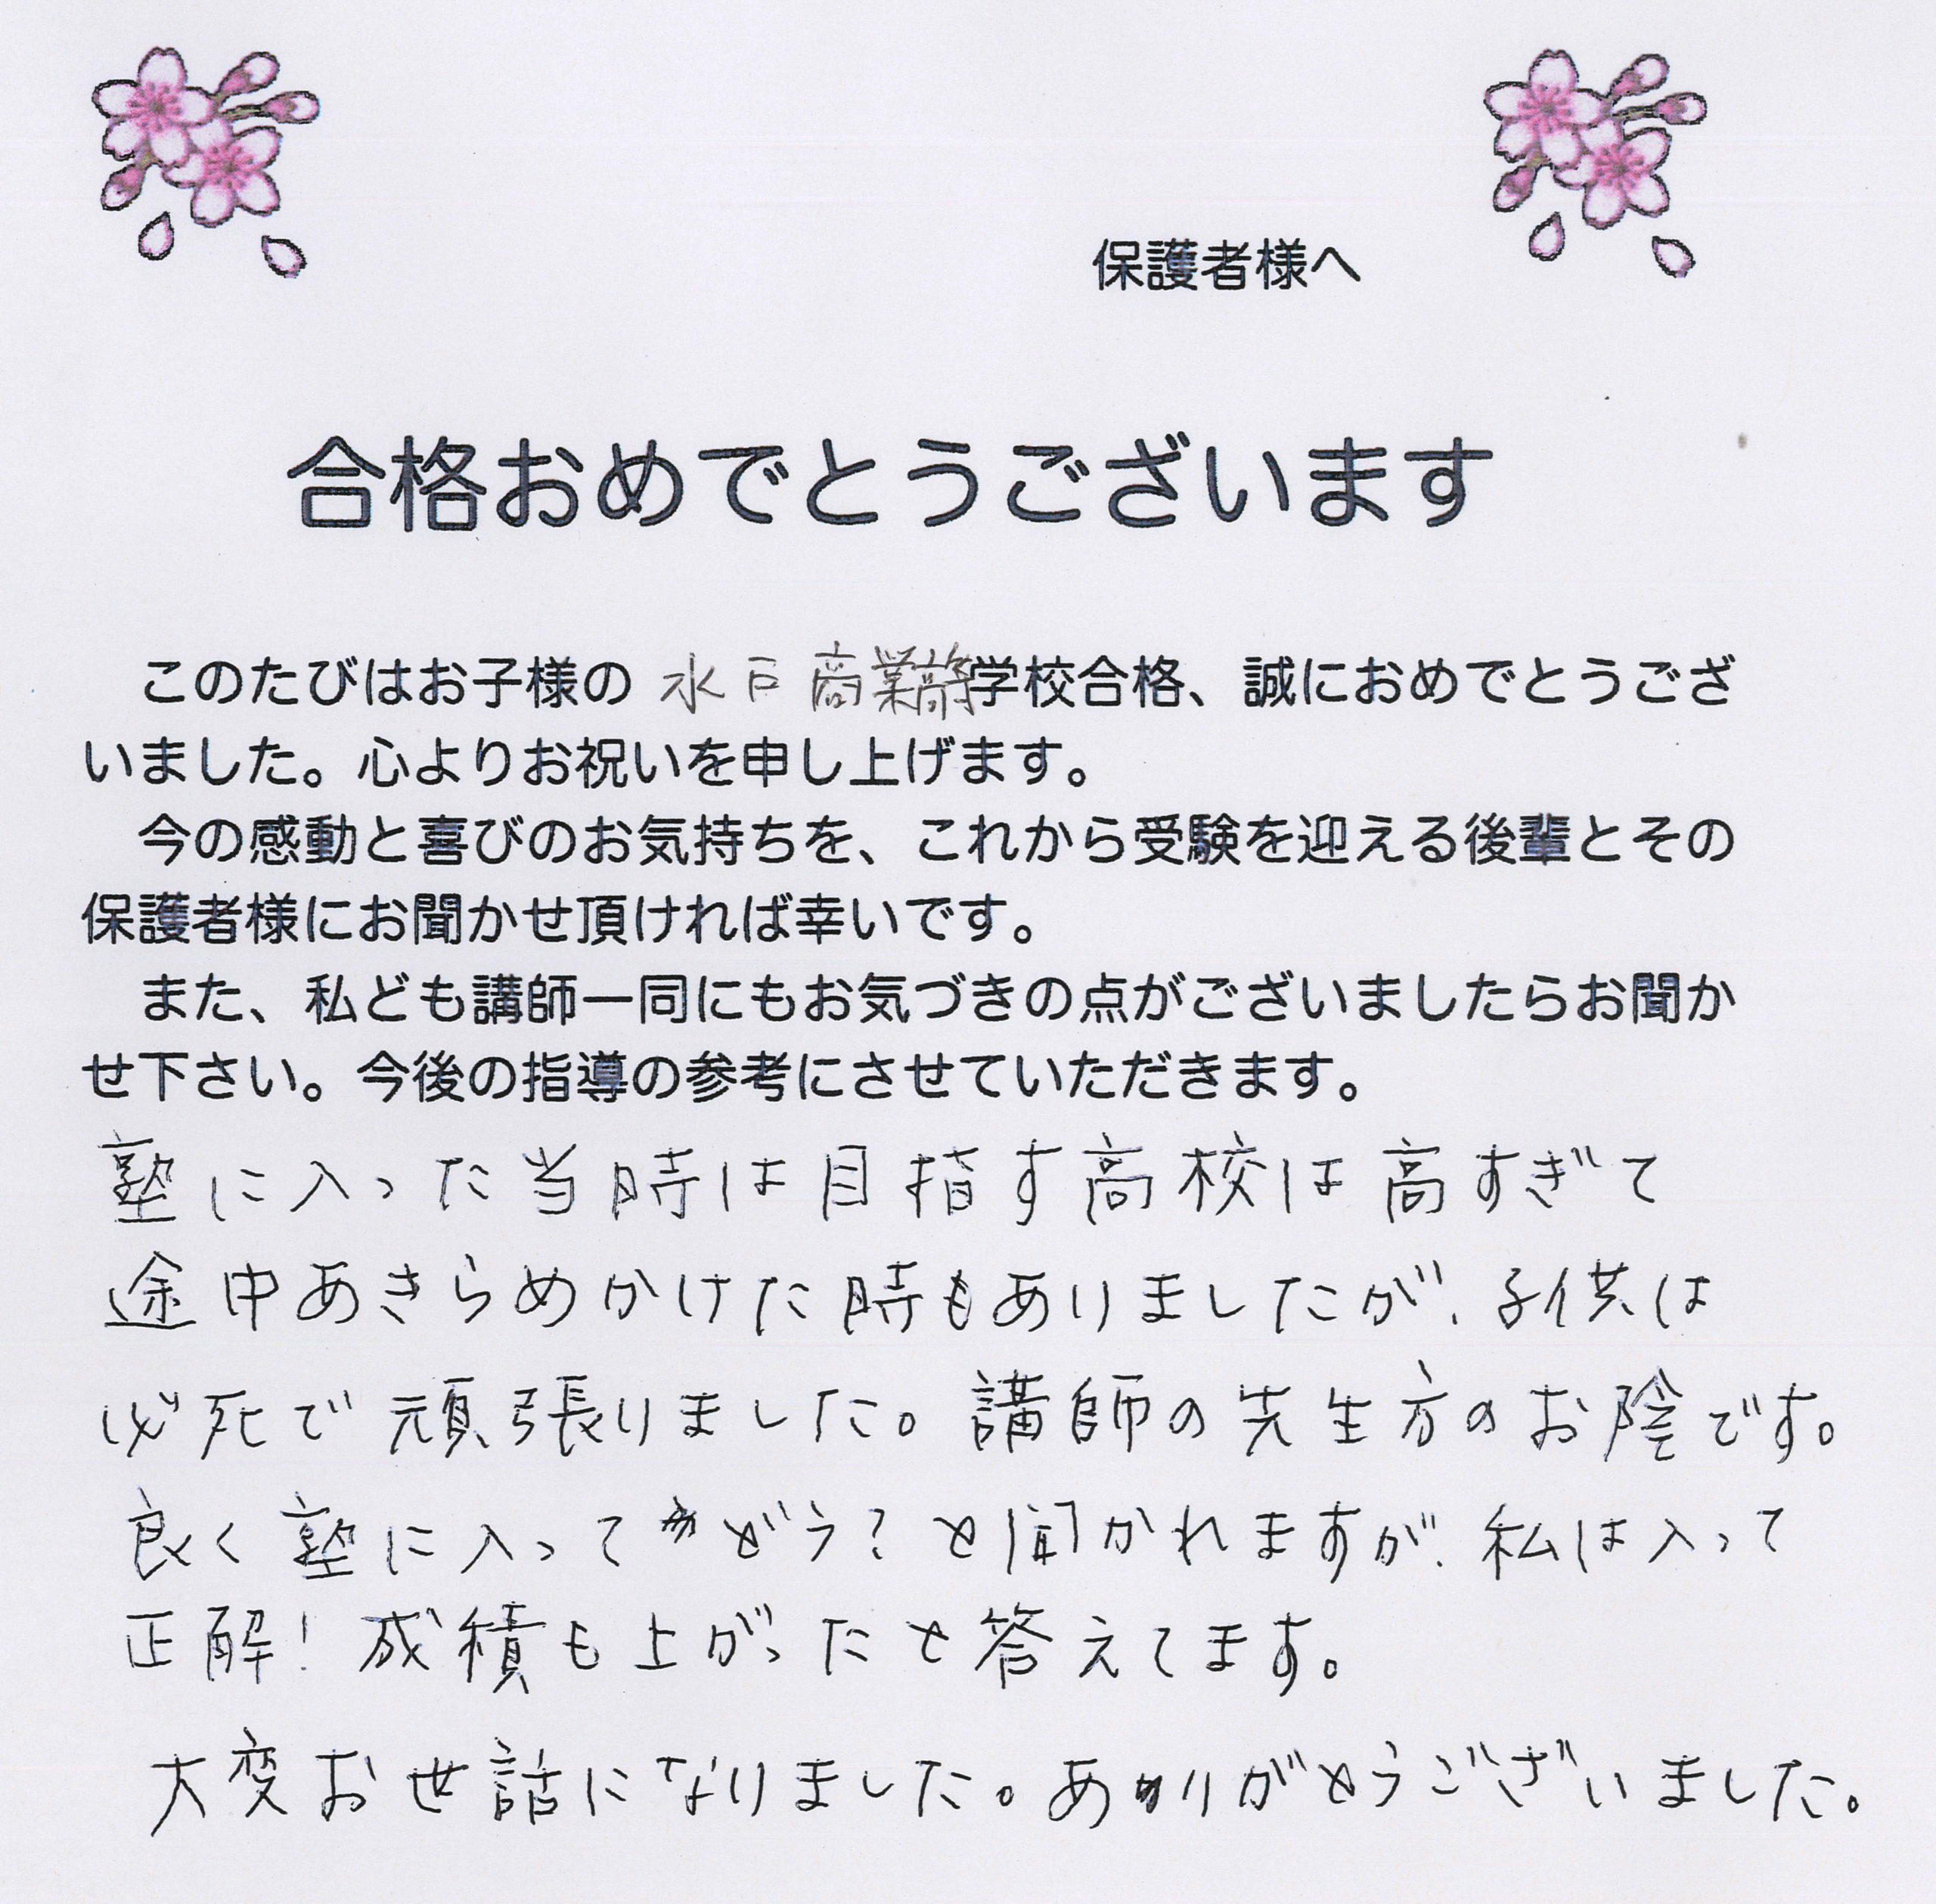 保護者様へ
合格おめでとうございます
このたびはお子様の 水戸商業高等学校合格、誠におめでとうござ
いました。心よりお祝いを申し上げます。
今の感動と喜びのお気持ちを、これから受験を迎える後輩とその
保護者様にお聞かせ頂ければ幸いです。
また、私ども講師一同にもお気づきの点がございましたらお聞か
せ下さい。今後の指導の参考にさせていただきます。
塾に入った当時は目指す高校は高すぎて
途中あきらめかけた時もありましたが、子供は
必死で頑張りました。講師の先生方のお陰です。
良く塾に入ってどう?と聞かれますが、私は入って
正解!成績も上がったと答えてます。
大変お世話になりました。ありがとうございました。